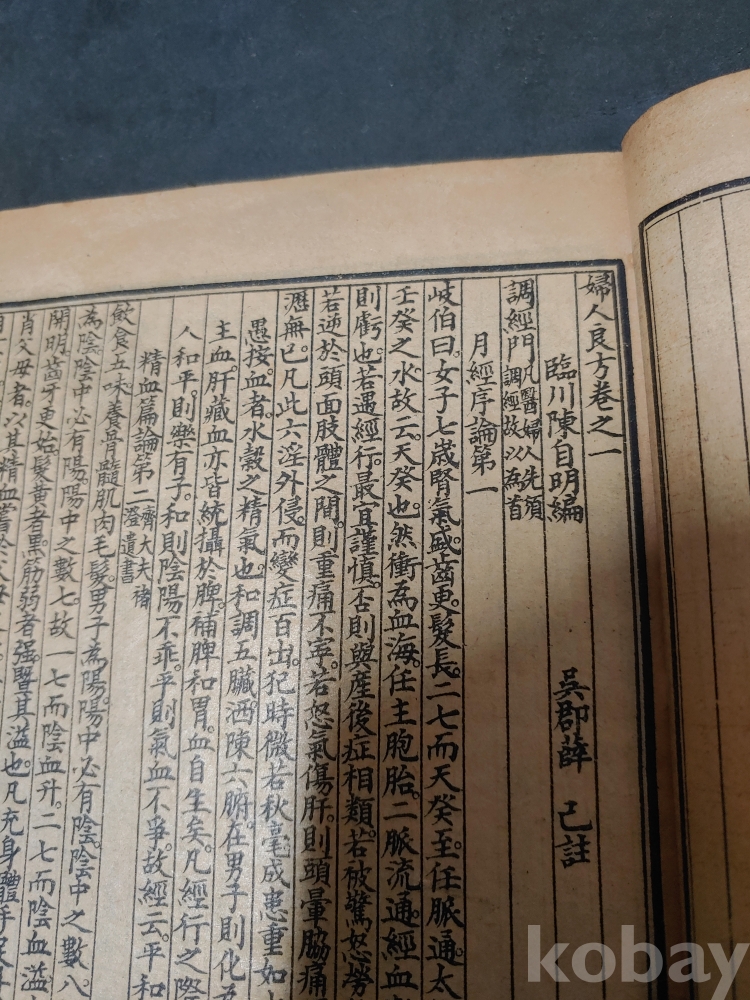 婦人良方卷之一
臨川陳自明編 吳郡薛 己註
調經門 凡醫婦人先須調經故以為首
月經序論第一
岐伯曰女子七歲腎氣盛齒更髮長二七而天癸至任脈通太
壬癸之水故云天癸也然衝為血海任主胞胎二脈流通經血
則虧也若遇經行最宜謹慎否則與產後症相類若被驚怒勞
若逆於頭面肢體之間則重痛不寧若怒氣傷肝則頭暈脇痛
瀝無已凡此六淫外侵而變症百出犯時微若秋毫成患重如
愚按血者水穀之精氣也和調五臟洒陳六腑在男子則化為
主血肝藏血亦皆統攝於脾補脾和胃血自生矣凡經行之際
人和平則樂有子和則陰陽不乖平則氣血不爭故經云平和
精血篇論第二 齊大夫褚澄遺書
飲食五味養骨髓肌肉毛髮男子為陽陽中必有陰陰中之數八
為陰陰中必有陽陽中之數七故一七而陰血升二七而陰血溢
開明齒牙更始髮黃者黑筋弱者强暨其溢也凡充身體手足
肖父母者以其精血嘗於父母
kobay